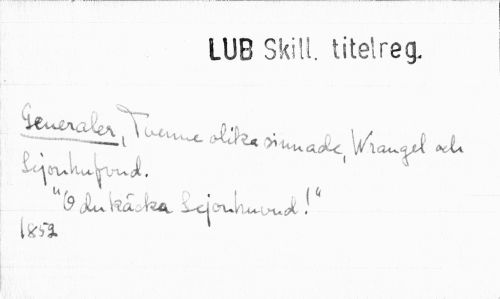 LUB Skill. titelreg.
Generaler, Tvenne olika sinnade, Wrangel och
Lejonhufvud.
"O du käcka Lejonhuvud!"
1852